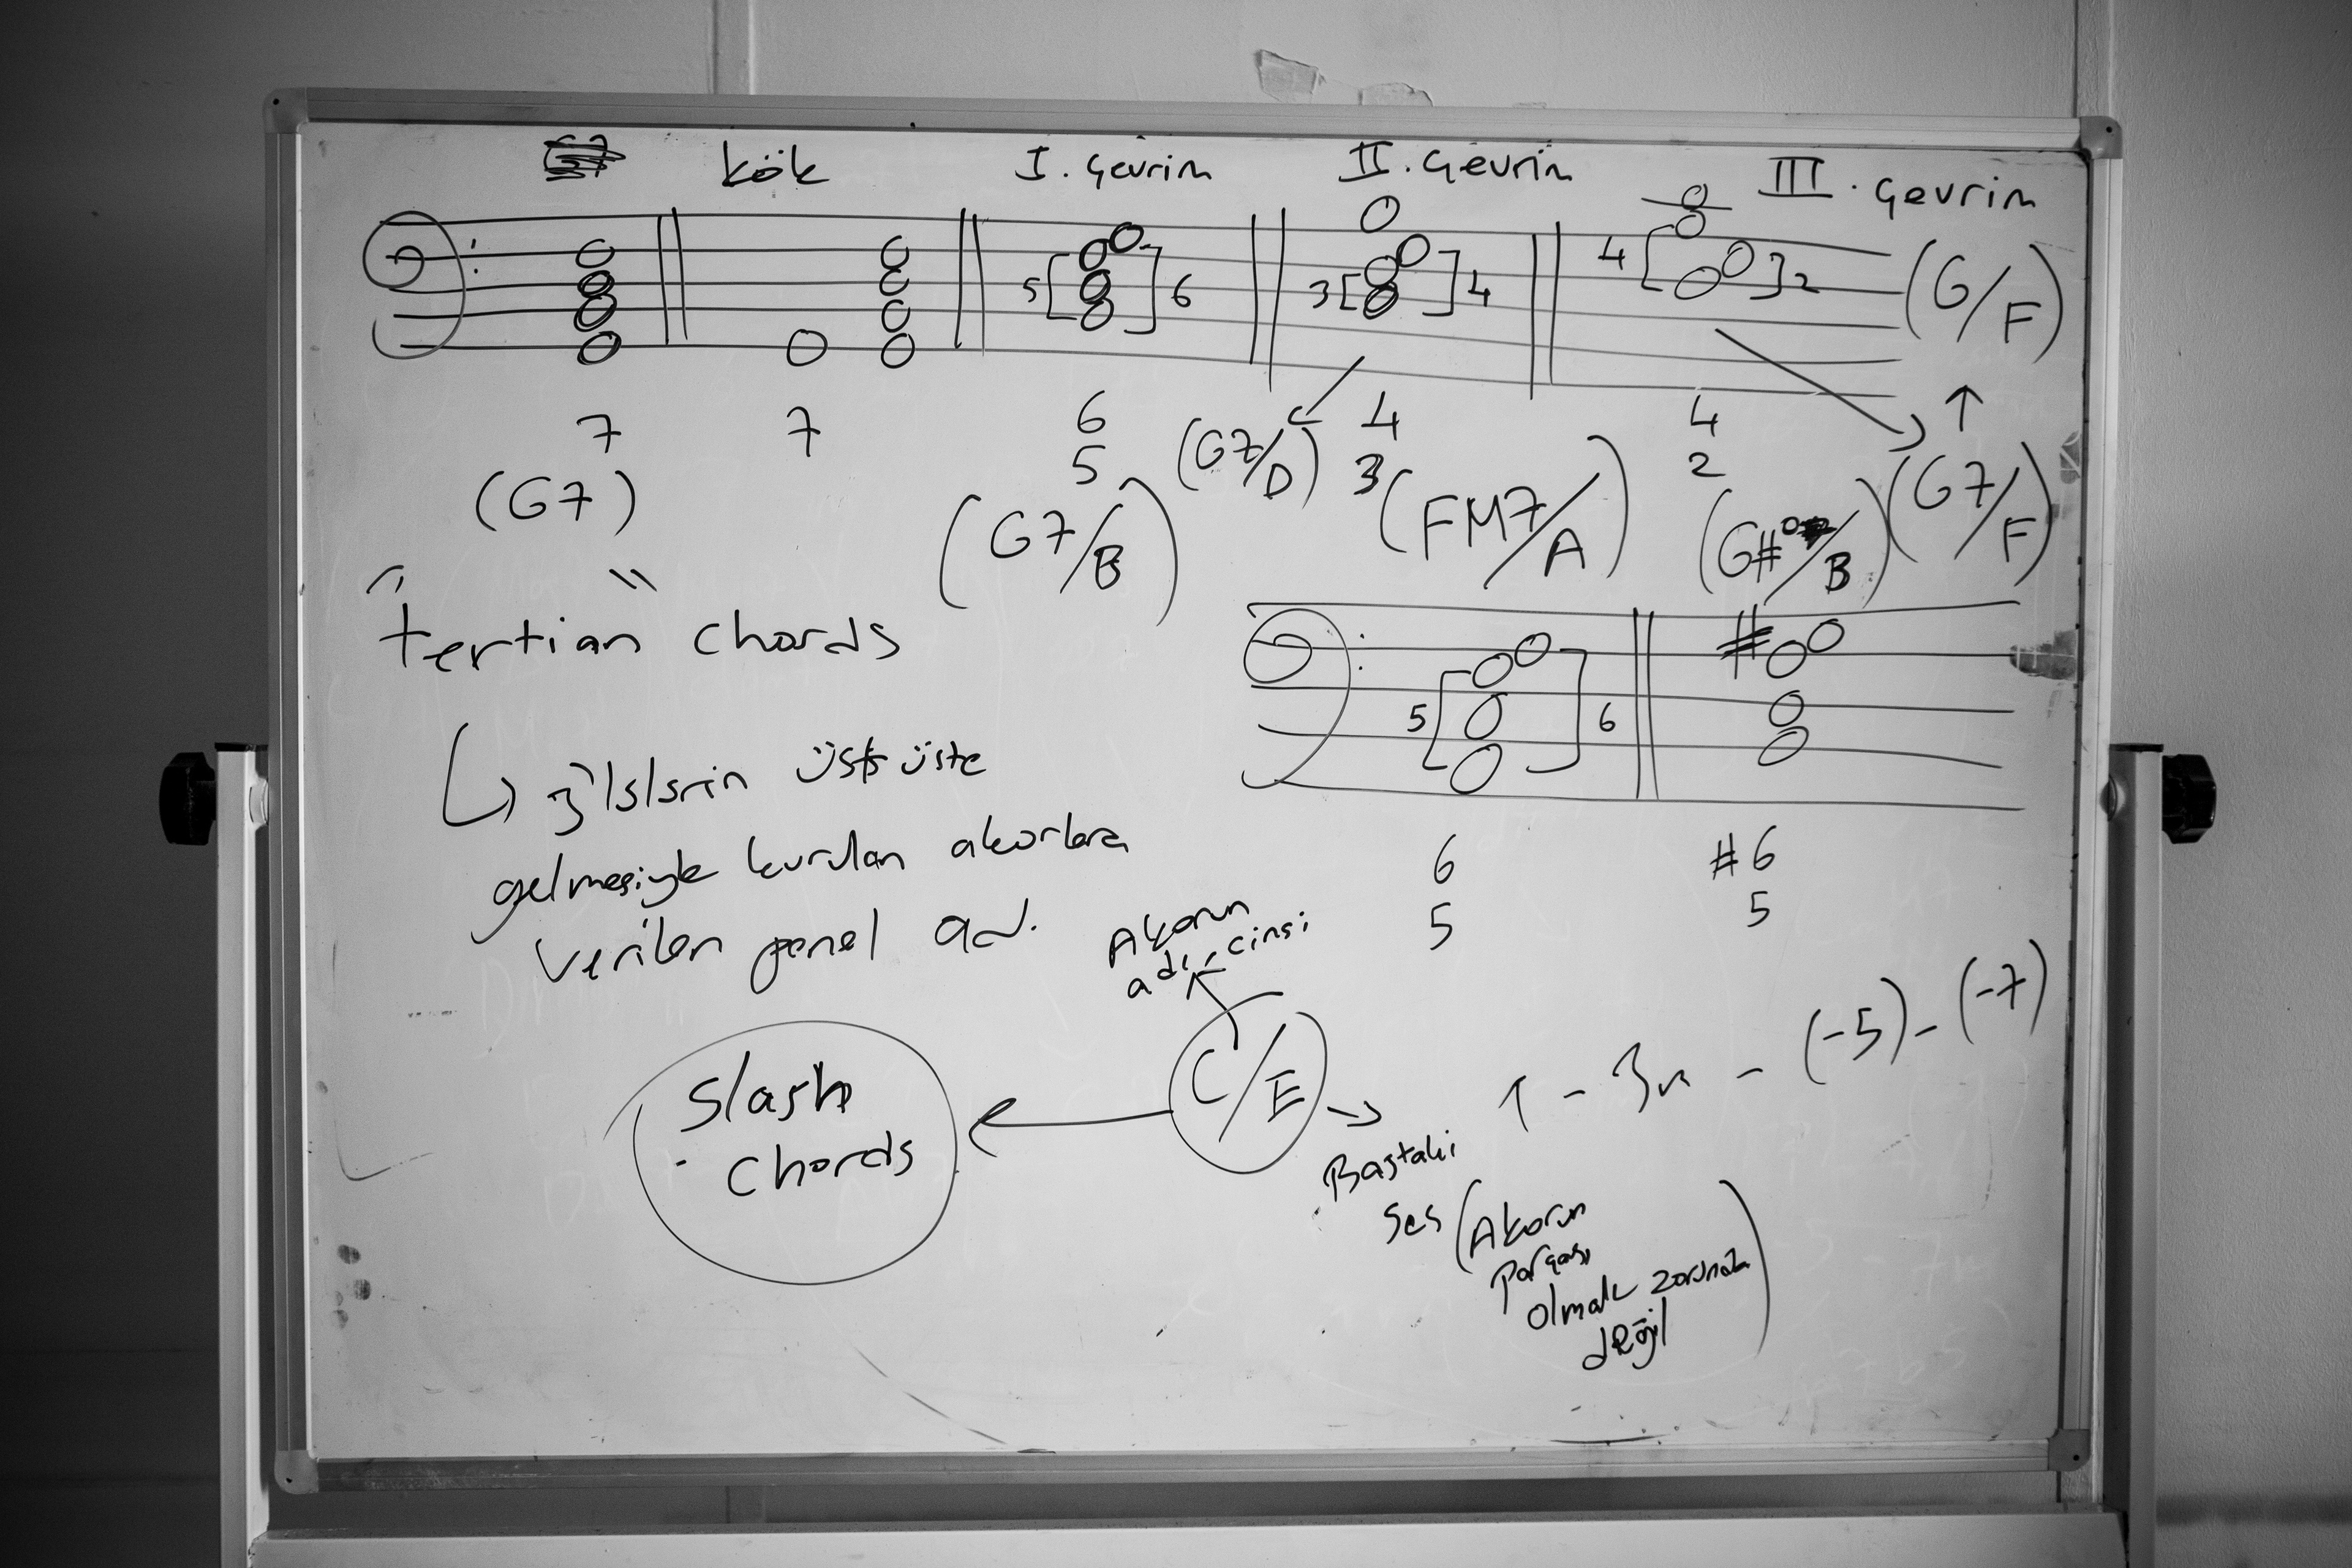 kök I. Çevrim II. Çevrim III. Çevrim
5 6 3 4 4 2 (G/F)
7 7 6 4 4
5 (G7/D) 3 2
(G7) (G7/B) (FM7/A) (G#o/B) (G7/F)
"tertian" chords
5 6 #
3'lülerin üst üste
gelmesiyle kurulan akorlara
verilen genel ad.
6 #6
5 5
Akorun
adı, cinsi
C/E
1 - 3m - (-5) - (-7)
Slash
chords
Bastaki
ses (Akorun
parçası
olmak zorunda
değil)